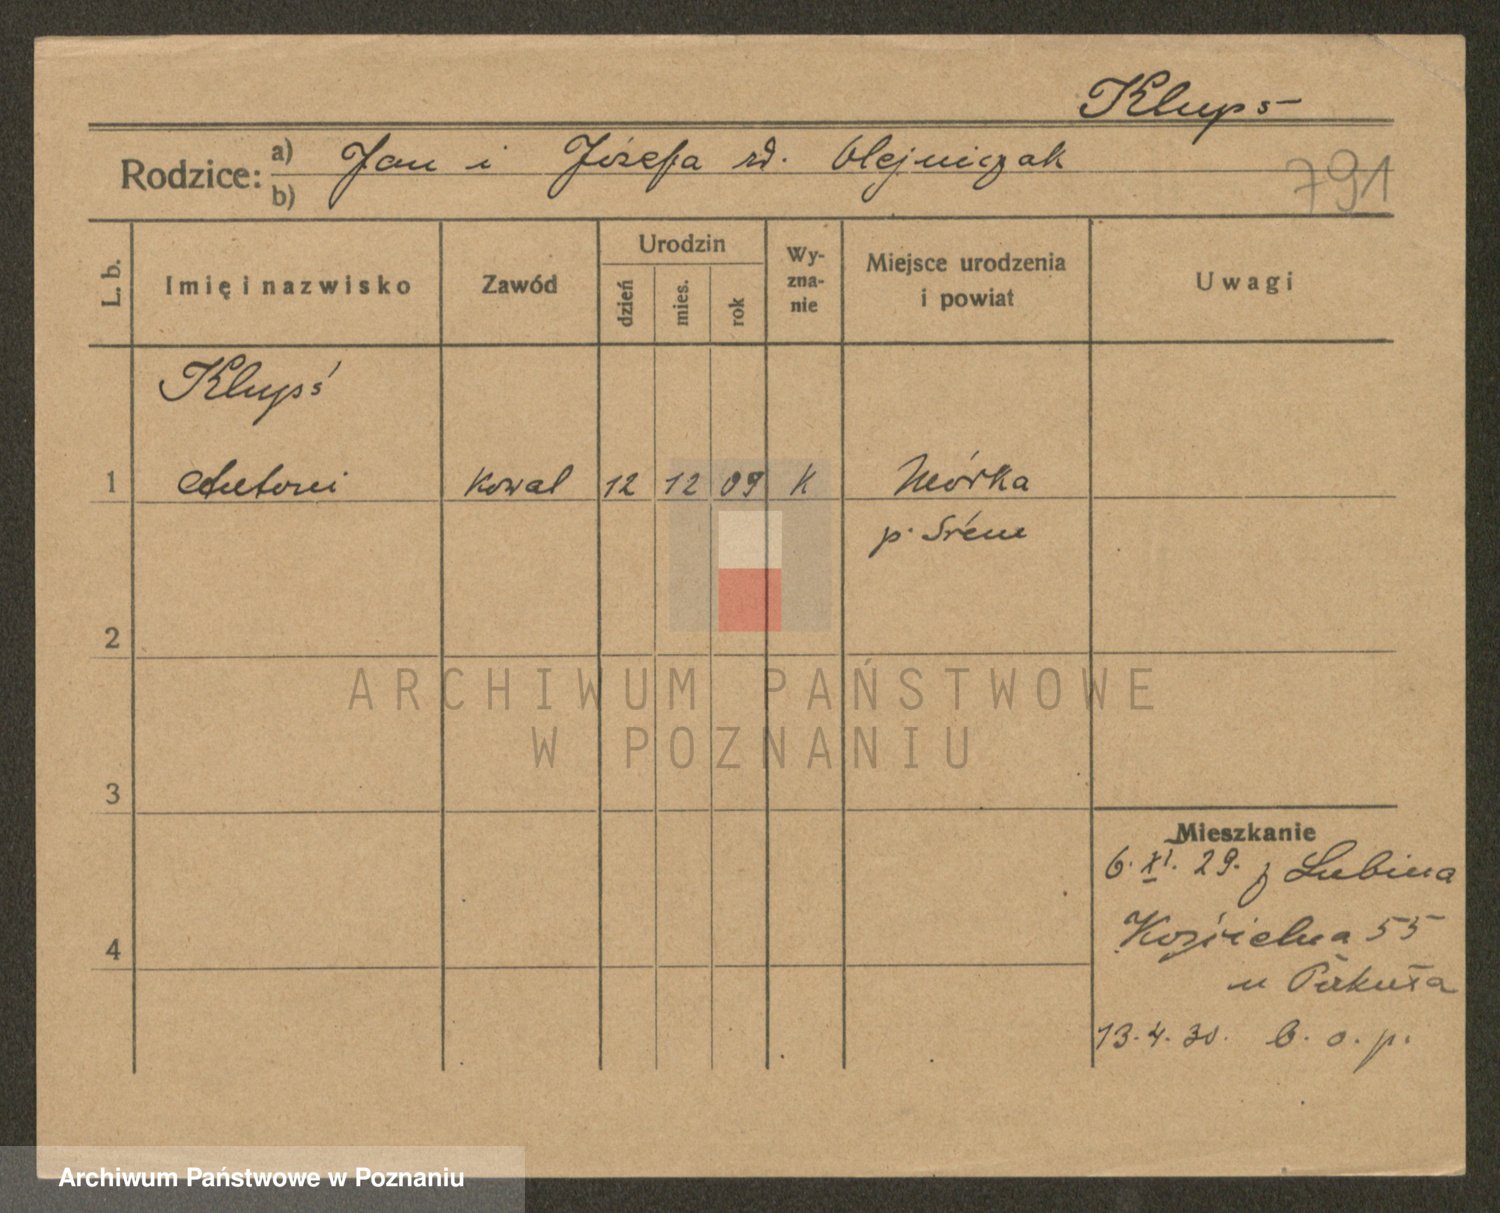 Klupś
Rodzice: a) Jan i Józefa rd. Olejniczak
b)
791
L. b. Imię i nazwisko Zawód Urodzin dzień mies. rok Wy-zna-nie Miejsce urodzenia i powiat Uwagi
Klupś
1 Antoni kowal 12 12 09 K Mórka
p. Śrem
2
ARCHIWUM PAŃSTWOWE
W POZNANIU
3
Mieszkanie
6. XI. 29. z Lubina
Kościelna 55
4
u
13. 4. 30. b. o. p.
Archiwum Państwowe w Poznaniu